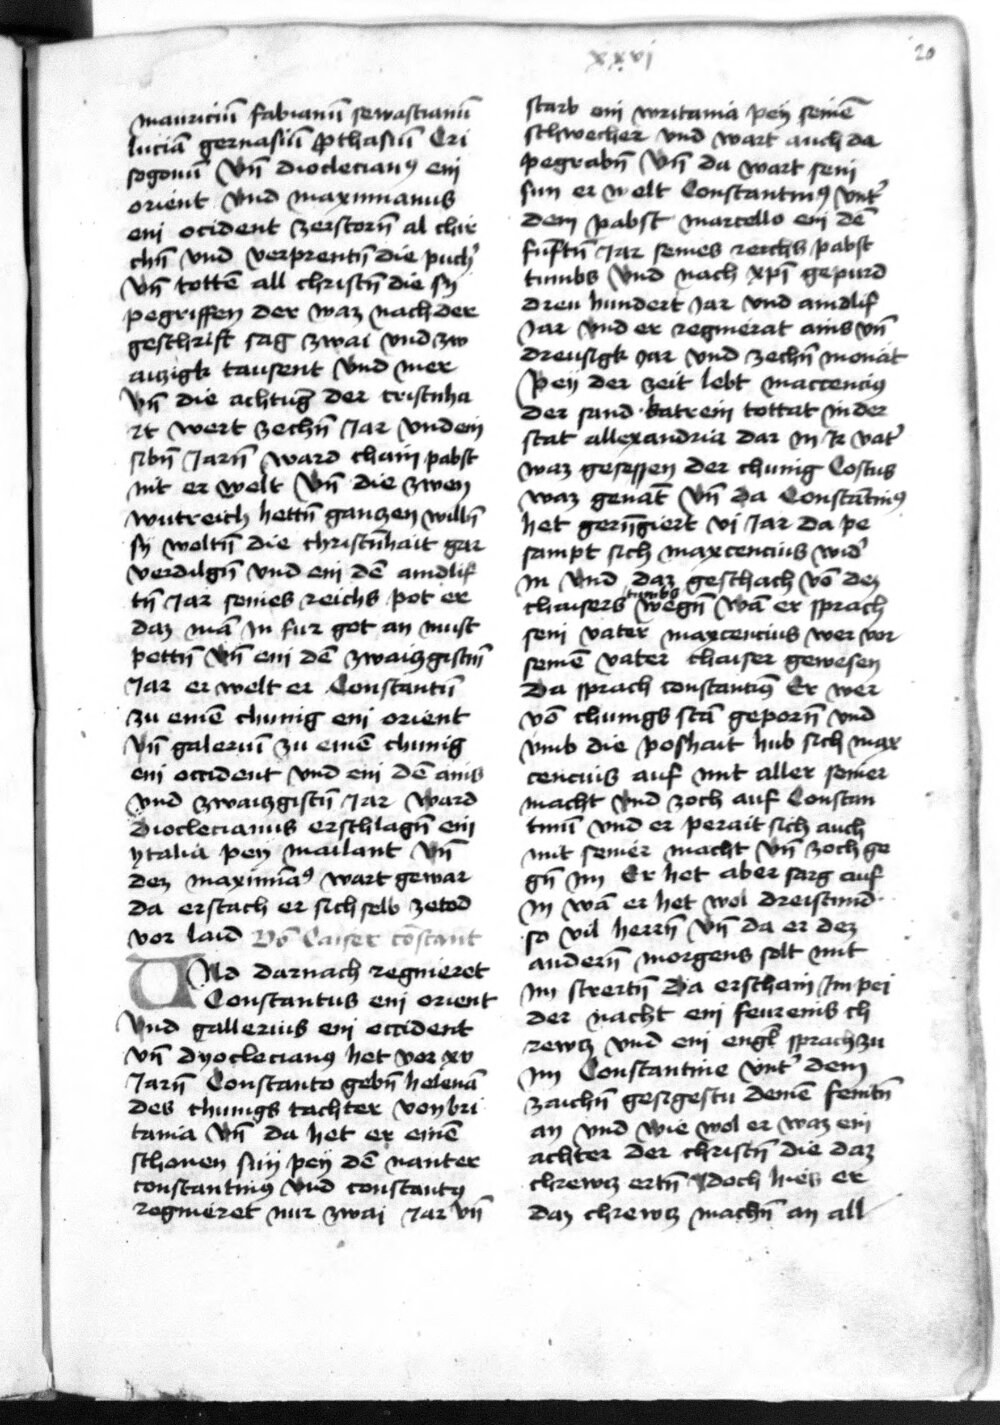 xxvi
20
mauriciu̅ fabianu̅ sewastianu̅
lucia̅ geruasiu̅ ꝓthasiu̅ Cri
sogonu̅ Vn̅ dioclecian⁹ ein
orient Vnd maximianus
ein ocident zerstorn̅ al chir
chn̅ Vnd verprentn̅ die puch᾽
Vn̅ totte̅ all christn̅ die sy
pegriffen der waz nach der
geschrift sag zwai Vnd zw
ainzigk tausent Vnd mer
Vn̅ die achtu̅g der cristnha
it wert zechn̅ Jar Vnd ein
sibn̅ Jarn̅ ward chain pabst
nit er welt Vn̅ die zwen
wutreich hettn̅ ganczen willn̅
sy woltn̅ die christn̅hait gar
verdilgn̅ Vnd ein de̅ aindlif
tn̅ Jar seines reichs pot er
daz ma̅ In fur got an must
pettn̅ Vn̅ ein de̅ zwaiczgistn̅
Jar er welt er Constantiu̅
zu eine̅ chunig ein orient
Vn̅ galeriu̅ zu eine̅ chunig
ein occident Vnd ein de̅ ains
Vnd zwaiczgistn̅ Jar Ward
dioclecianus erschlagn̅ ein
ytalia pey mailant Vn̅
dez maximia̅⁹ wart gewar
da erstach er sich selb ze tod
vor laid Vo̅ Caiser co̅stant
Vnd darnach regnieret
Constantus ein orient
Vnd gallerius ein occident
Vn̅ dyoclecian⁹ het vor xv
Jarn̅ Constanto gebn̅ helena̅
des chunigs tachter von bri
tania Vn̅ da het er eine̅
schonen sun pey de̅ nanter
constantin⁹ Vnd constant⁹
regnieret nur zwai Jar Vn̅
starb ein writania pey seine̅
schwecher Vnd wart auch da
pegrabn̅ Vn̅ da wart sein
sun er welt Constantin⁹ Vnt᾽
dem pabst marcello ein de̅
funftn̅ Jar seines reichs pabst
tumbs Vnd nach xp̅i gepurd
dreu hundert Jar Vnd aindlif
Jar Vnd er regnierat ains Vn̅
dreusigk Jar Vnd zechn̅ monat
Pey der zeit lebt maccenci⁹
der sand katrein tottat in der
stat allexandria dar in Ir vat᾽
waz gesessen der chunig Costus
waz gena̅t Vn̅ da Constantin⁹
het geregn̅iert vi Jar da pe
sampt sich maxcencius wid᾽
in Vnd daz geschach Vo̅ dez
chaisers tumbs wegn̅ Wa̅ er sprach
sein vater maxcencius wer vor
seine̅ vater chaiser gewesen
Da sprach constanti⁹ Er wer
vo̅ chunigs sta̅ geporn̅ Vnd
vmb die poshait hub sich max
cencius auf mit aller seiner
macht Vnd zoch auf Constan
tinu̅ Vnd er perait sich auch
mit seiner macht Vn̅ zoch ge
gn̅ im Er het aber sarg auf
in wa̅ er het wol dreistund
so vil herrn̅ Vn̅ da er dez
andern̅ morgens solt mit
im streitn̅ Da erschain Im pei
der nacht ein feureins ch
rewcz Vnd ein engl̅ sprach zu
im Constantine Vnt᾽ dem
zaichn̅ gesigestu deine̅ feintn̅
an Vnd wie wol er waz ein
achter der christn̅ die daz
chrewcz ertn̅ ydoch hies er
daz chrewcz machn̅ an all